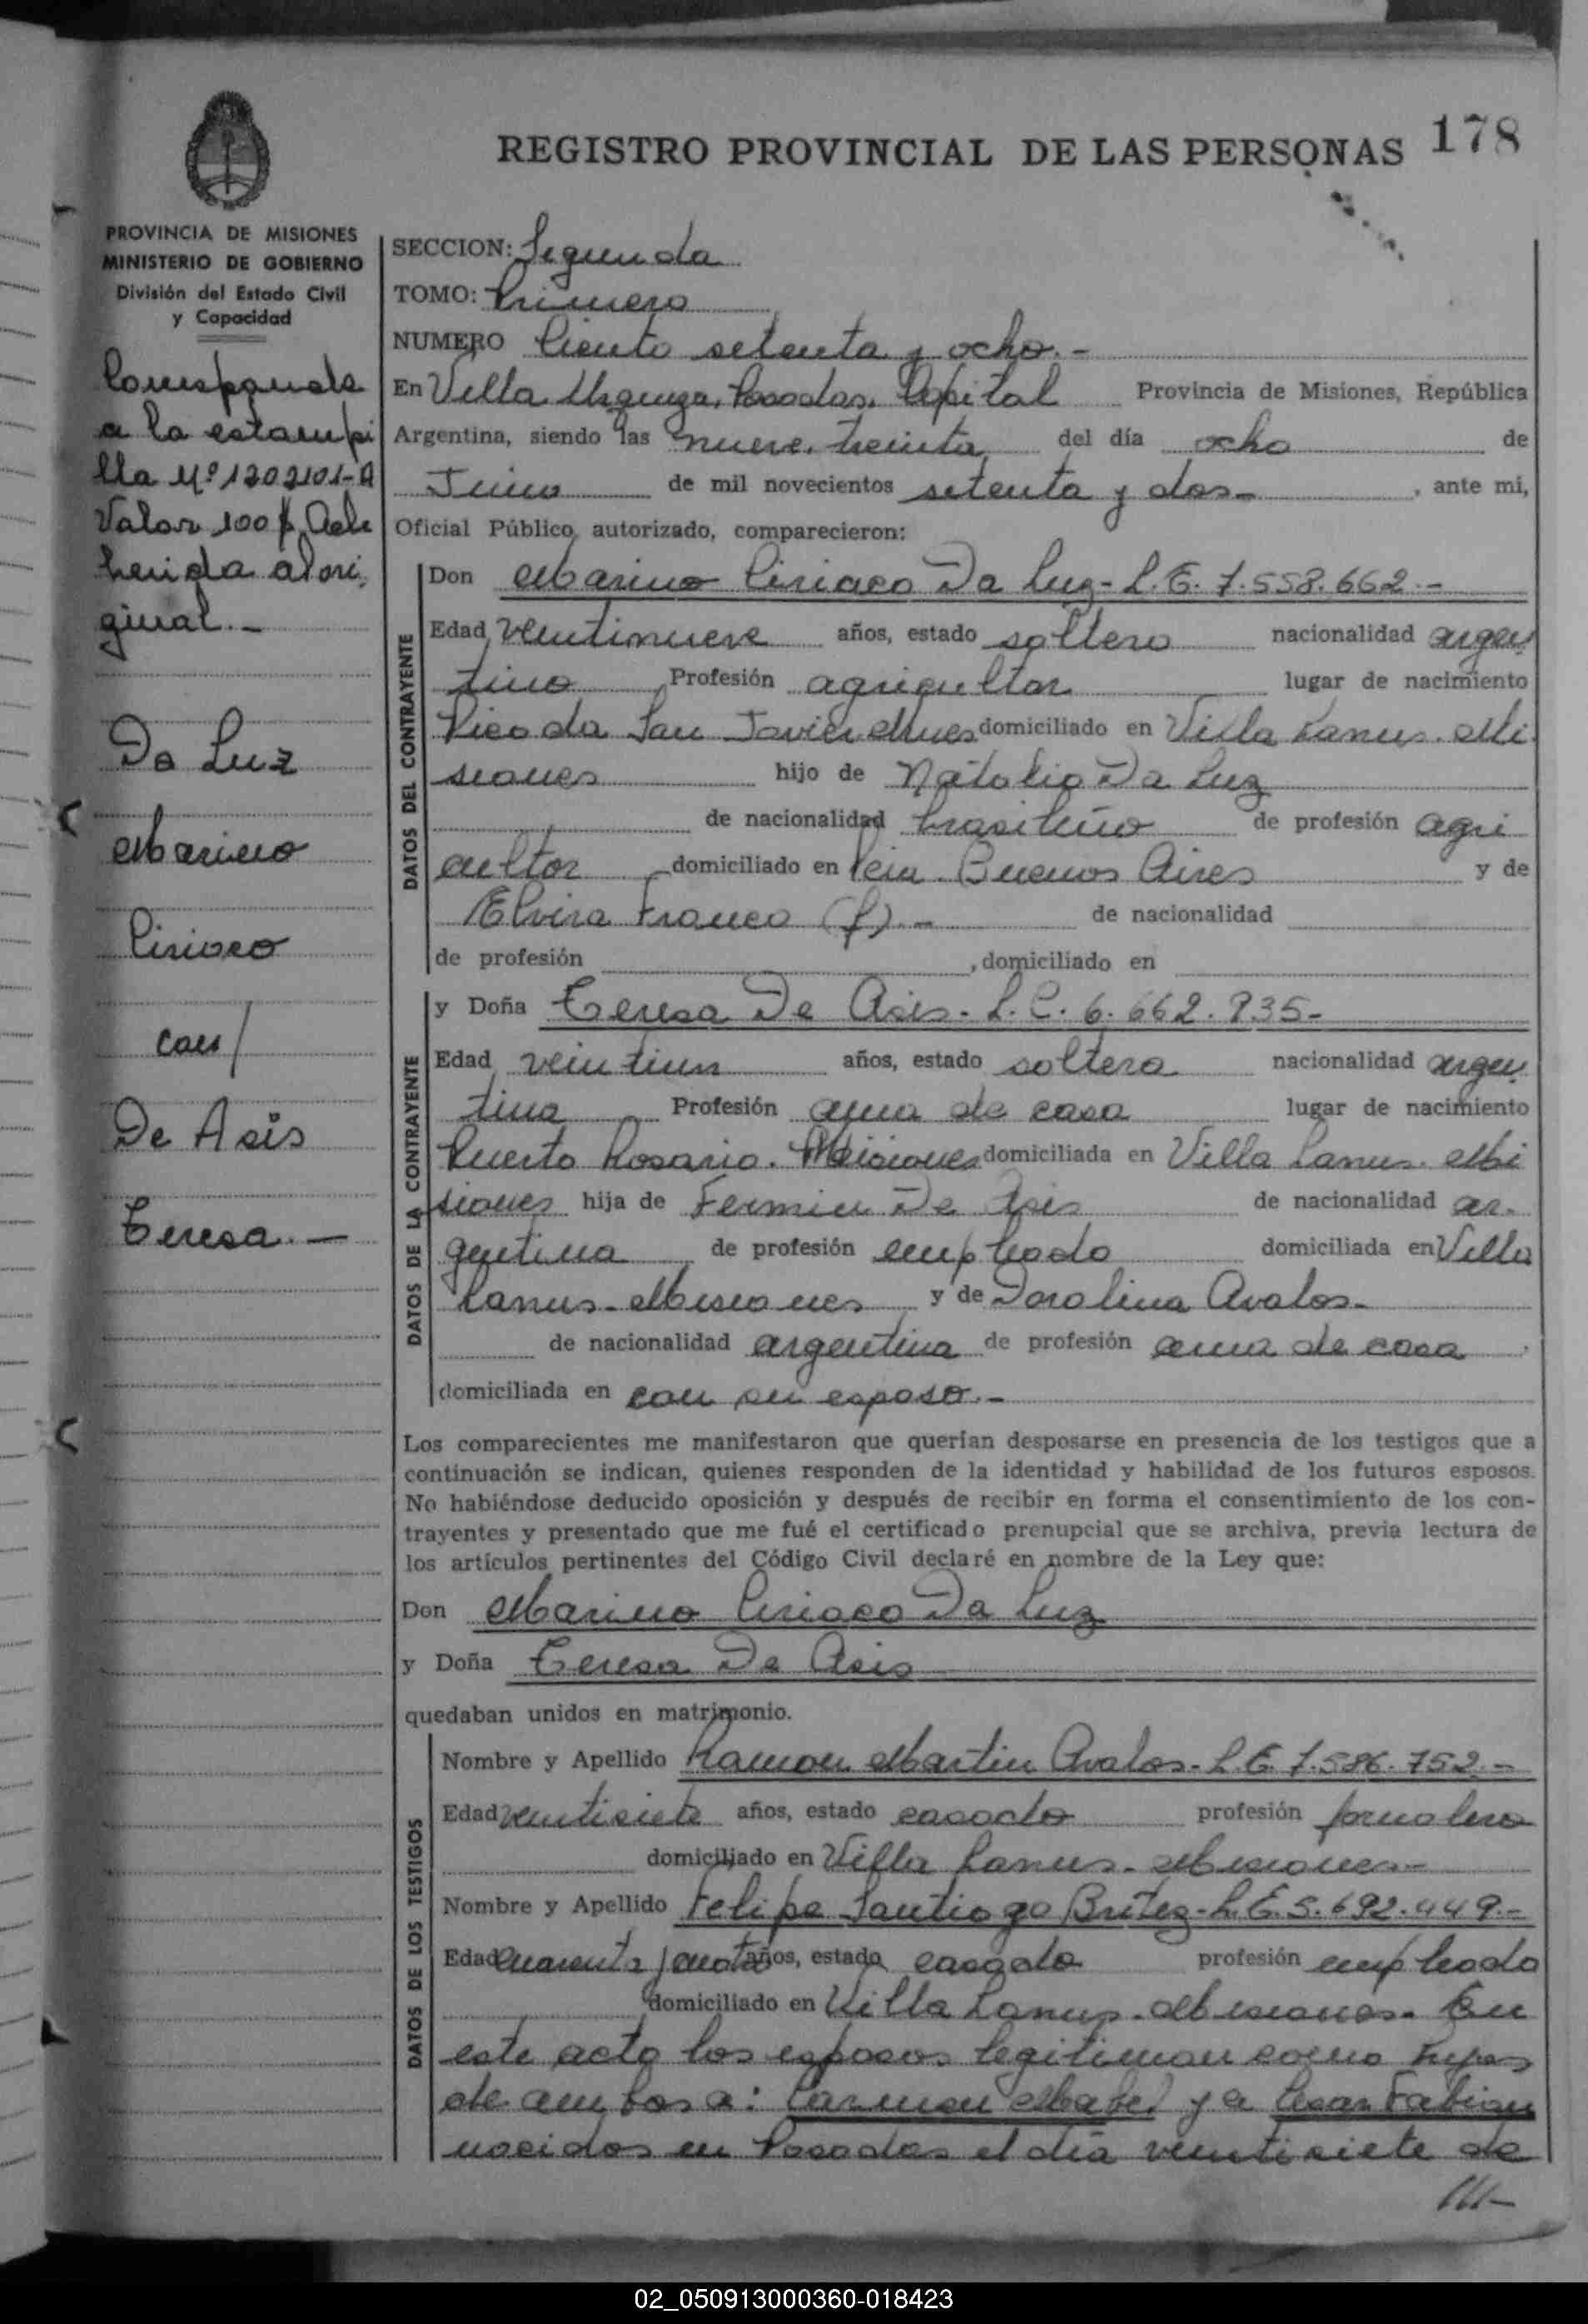 REGISTRO PROVINCIAL DE LAS PERSONAS 178
PROVINCIA DE MISIONES
MINISTERIO DE GOBIERNO
División del Estado Civil
y Capacidad
Corresponde
a la estampi
lla Nº 1202101-A
Valor 100 $ Adhe
herida al ori
ginal.-
Da Luz
Marino
Ciriaco
con/
De Asis
Teresa.-
SECCION: Segunda
TOMO: Primero
NUMERO Ciento setenta y ocho.-
En Villa Urquiza, Posadas, Capital Provincia de Misiones, República
Argentina, siendo las nueve, treinta del día ocho de
Junio de mil novecientos setenta y dos- , ante mi,
Oficial Público autorizado, comparecieron:
DATOS DEL CONTRAYENTE
Don Marino Ciriaco Da Luz- L.E. 7.558.662.-
Edad veintinueve años, estado soltero nacionalidad argen
tino Profesión agricultor lugar de nacimiento
Picada San Javier Mnes domiciliado en Villa Lanus. Mi
siones hijo de Natalio Da Luz
de nacionalidad brasileño de profesión agri
cultor domiciliado en Pcia. Buenos Aires y de
Elvira Franco (f).- de nacionalidad
de profesión , domiciliado en
DATOS DE LA CONTRAYENTE
y Doña Teresa De Asis- L.C. 6.662.835-
Edad veintiun años, estado soltera nacionalidad argen
tina Profesión ama de casa lugar de nacimiento
Puerto Rosario. Misiones domiciliada en Villa Lanus. Mi
siones hija de Fermin De Asis de nacionalidad ar-
gentina de profesión empleado domiciliada en Villa
Lanus- Misiones y de Dorolina Avalos-
de nacionalidad argentina de profesión ama de casa ,
domiciliada en con su esposo.-
Los comparecientes me manifestaron que querían desposarse en presencia de los testigos que a
continuación se indican, quienes responden de la identidad y habilidad de los futuros esposos.
No habiéndose deducido oposición y después de recibir en forma el consentimiento de los con-
trayentes y presentado que me fué el certificado prenupcial que se archiva, previa lectura de
los artículos pertinentes del Código Civil declaré en nombre de la Ley que:
Don Marino Ciriaco Da Luz
y Doña Teresa De Asis
quedaban unidos en matrimonio.
DATOS DE LOS TESTIGOS
Nombre y Apellido Ramon Martin Avalos- L.E. 7.586.752.-
Edad veintisiete años, estado casado profesión jornalero
domiciliado en Villa Lanus- Misiones-
Nombre y Apellido Felipe Santiago Britez- L.E. 5.692.449.-
Edad cuarenta años, estado casado profesión empleado
domiciliado en Villa Lanus- Misiones. En
este acto los esposos legitiman como hijos
de ambos a: Carmen Mabel y a Cesar Fabian
nacidos en Posadas el día veintisiete de
///-
02_050913000360-018423